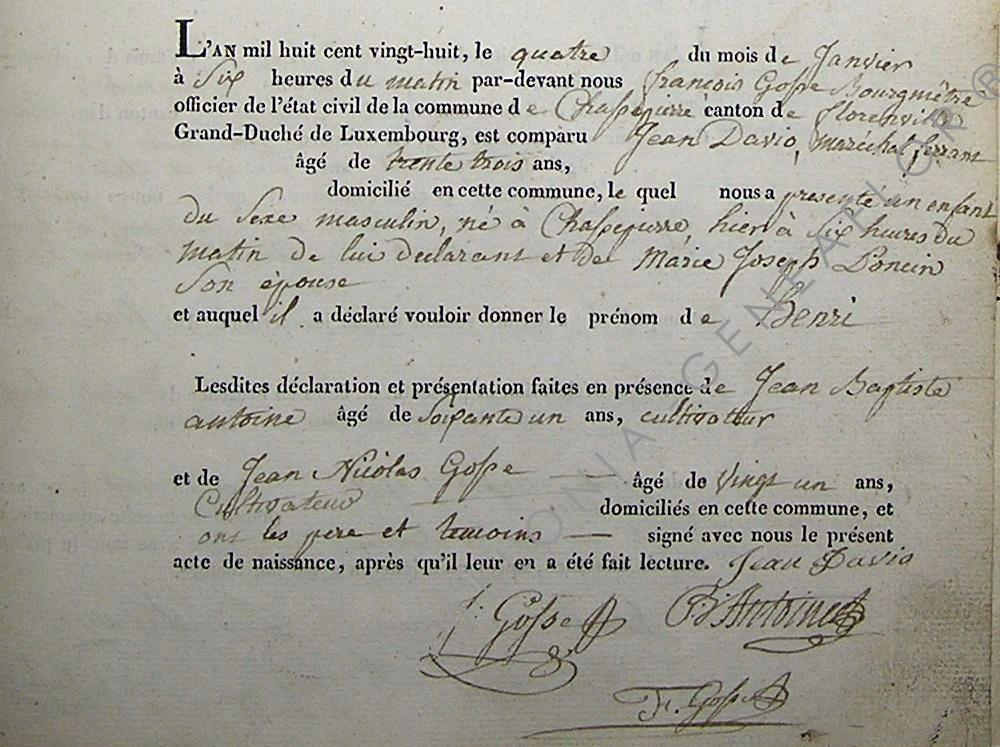 L'AN mil huit cent vingt-huit, le quatre du mois de Janvier
à Six heures du matin par-devant nous françois Gosse Bourgmêtre
officier de l'état civil de la commune de Chassepierre canton de florenville
Grand-Duché de Luxembourg, est comparu Jean David, maréchal ferrant
âgé de trente trois ans,
domicilié en cette commune, le quel nous a presenté un enfant
du Sexe masculin, né à Chassepierre, hier à six heures du
matin de lui declarant et de Marie Joseph Poncin
Son épouse
et auquel il a déclaré vouloir donner le prénom de Henri
Lesdites déclaration et présentation faites en présence de Jean Baptiste
antoine âgé de Soixante un ans, cultivateur
et de Jean Nicolas Gosse âgé de vingt un ans,
Cultivateur domiciliés en cette commune, et
ont les pere et temoins signé avec nous le présent
acte de naissance, après qu'il leur en a été fait lecture. Jean David
J. Gosse B Antoine
F. Gosse